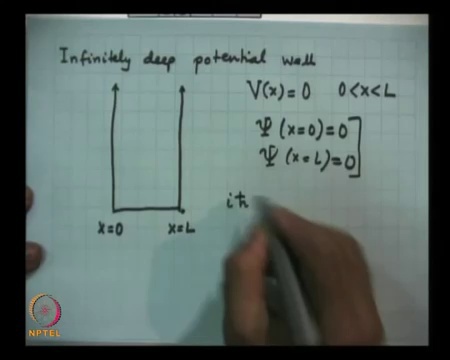 Infinitely deep potential well
V(x)=0 0<x<L
Ψ(x=0)=0
Ψ(x=L)=0
iħ
x=0 x=L
NPTEL